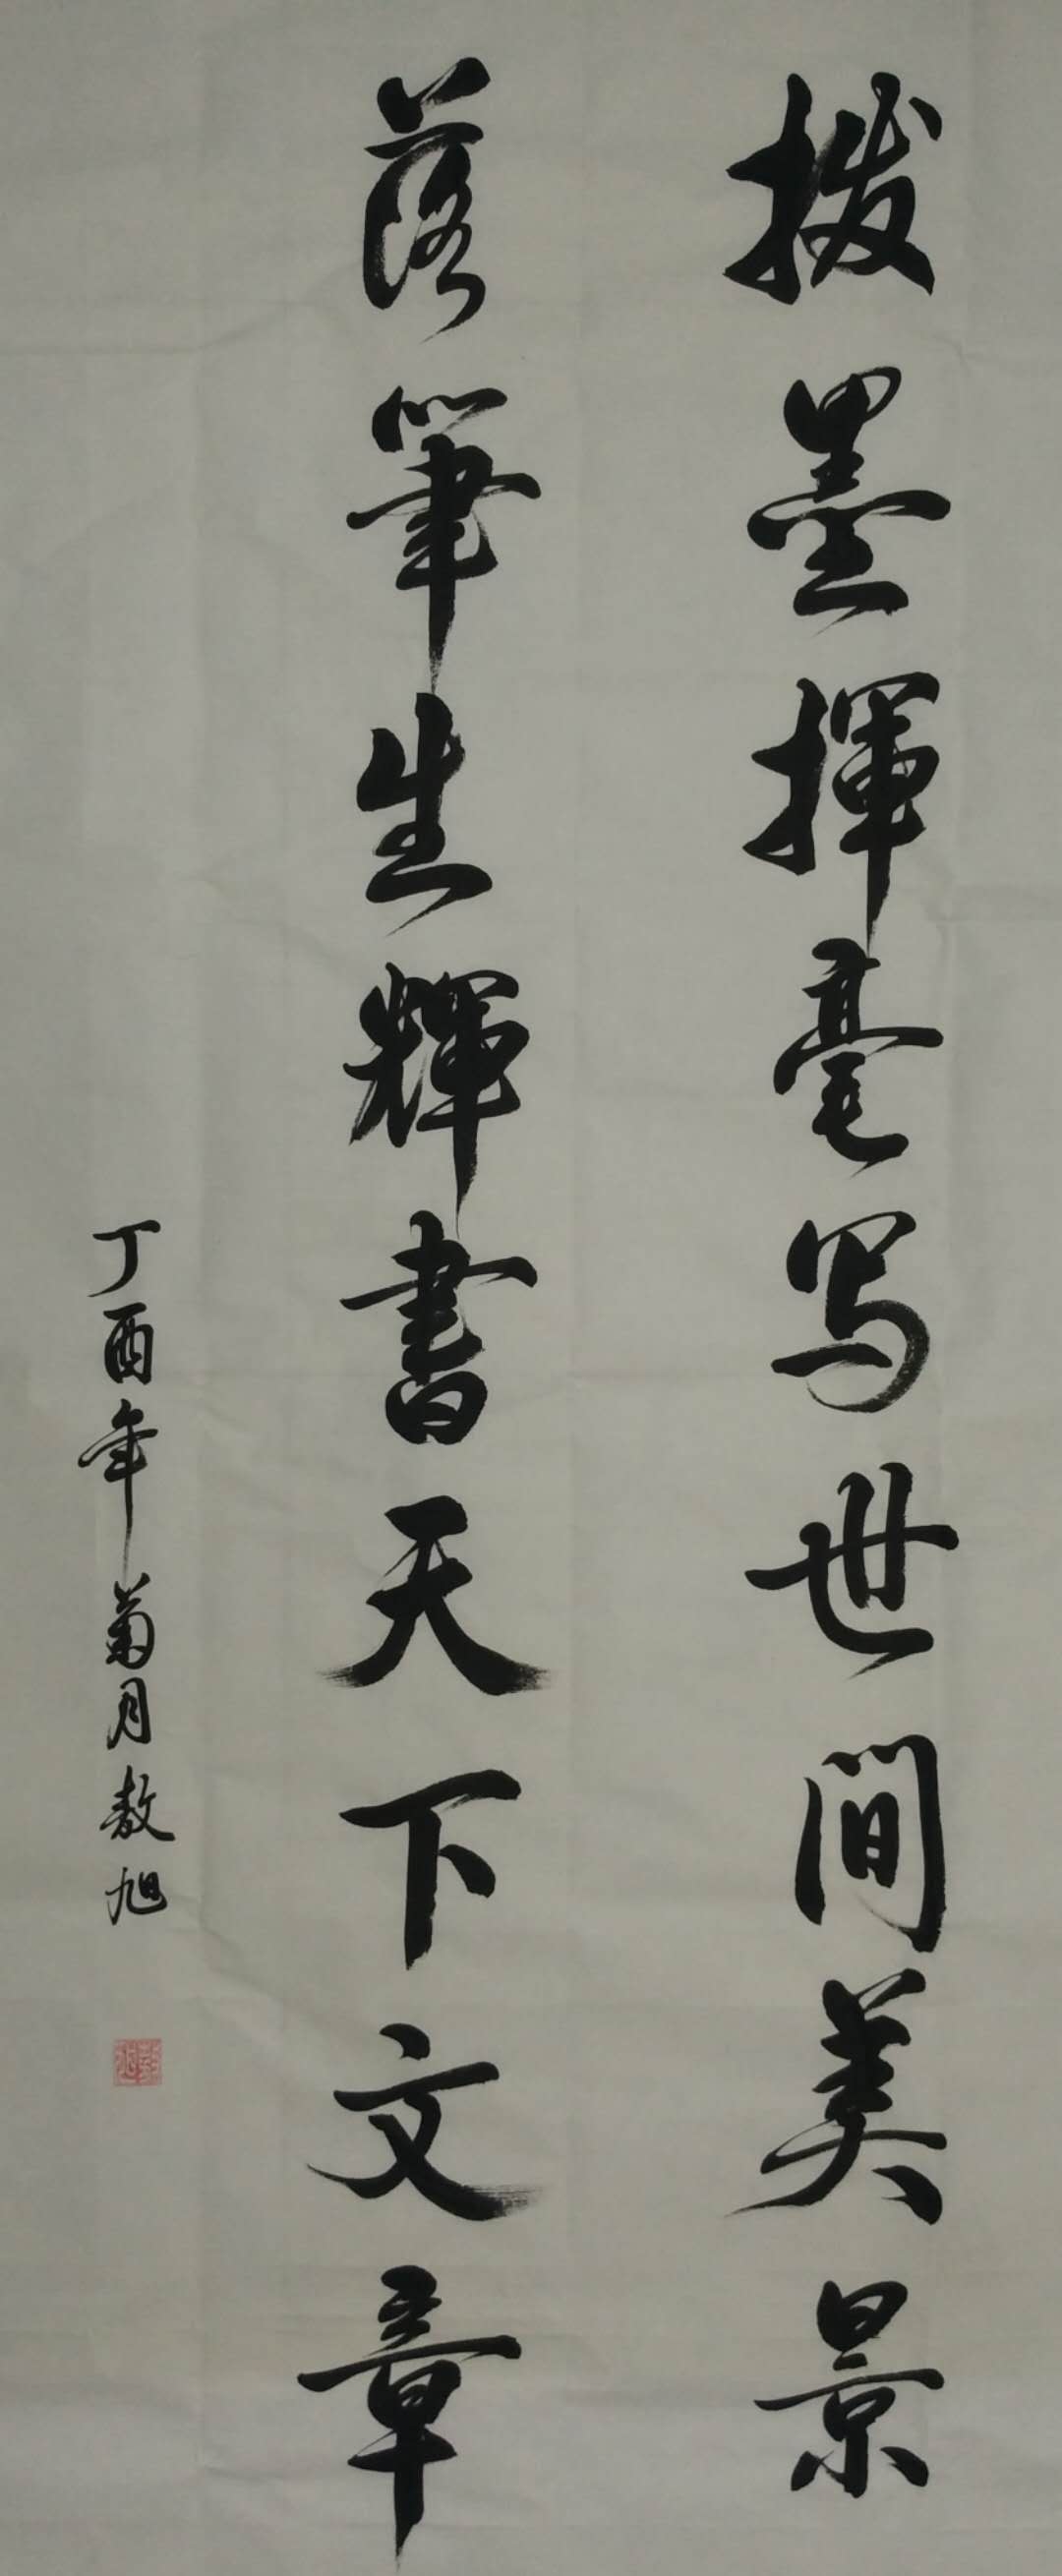 拨墨揮毫写世间美景
落筆生輝書天下文章
丁酉年菊月敖旭